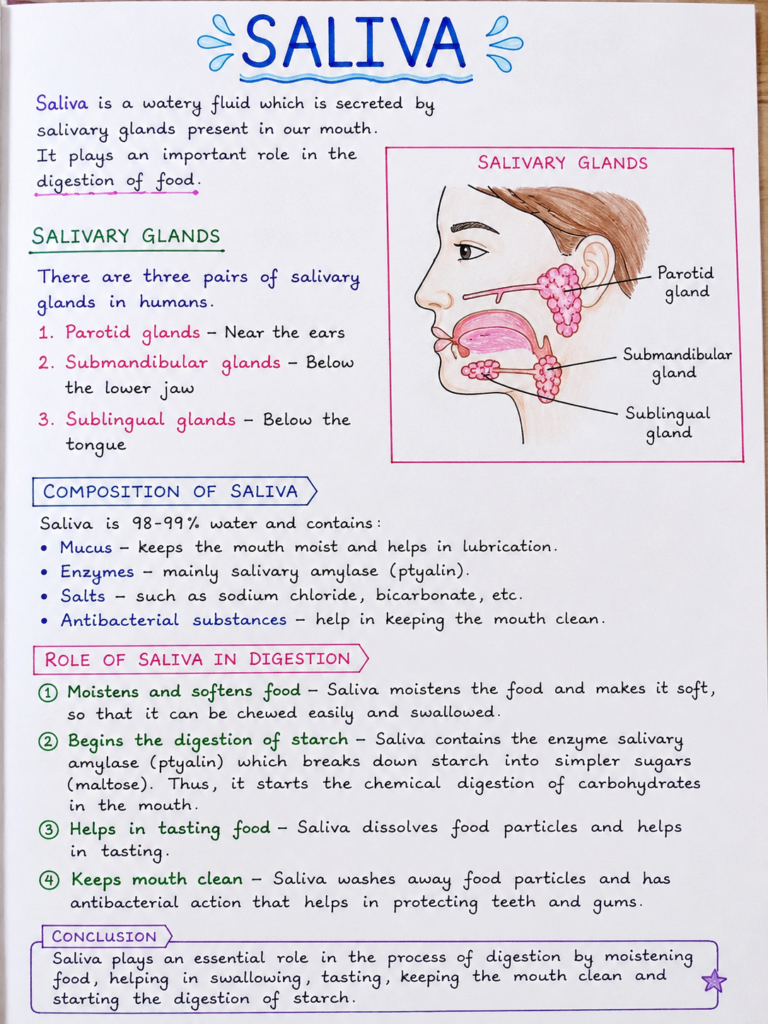 SALIVA
Saliva is a watery fluid which is secreted by
salivary glands present in our mouth.
It plays an important role in the
digestion of food.
SALIVARY GLANDS
There are three pairs of salivary
glands in humans.
1. Parotid glands – Near the ears
2. Submandibular glands – Below
the lower jaw
3. Sublingual glands – Below the
tongue
SALIVARY GLANDS
Parotid
gland
Submandibular
gland
Sublingual
gland
COMPOSITION OF SALIVA
Saliva is 98-99% water and contains:
• Mucus – keeps the mouth moist and helps in lubrication.
• Enzymes – mainly salivary amylase (ptyalin).
• Salts – such as sodium chloride, bicarbonate, etc.
• Antibacterial substances – help in keeping the mouth clean.
ROLE OF SALIVA IN DIGESTION
① Moistens and softens food – Saliva moistens the food and makes it soft,
so that it can be chewed easily and swallowed.
② Begins the digestion of starch – Saliva contains the enzyme salivary
amylase (ptyalin) which breaks down starch into simpler sugars
(maltose). Thus, it starts the chemical digestion of carbohydrates
in the mouth.
③ Helps in tasting food – Saliva dissolves food particles and helps
in tasting.
④ Keeps mouth clean – Saliva washes away food particles and has
antibacterial action that helps in protecting teeth and gums.
CONCLUSION
Saliva plays an essential role in the process of digestion by moistening
food, helping in swallowing, tasting, keeping the mouth clean and
starting the digestion of starch.